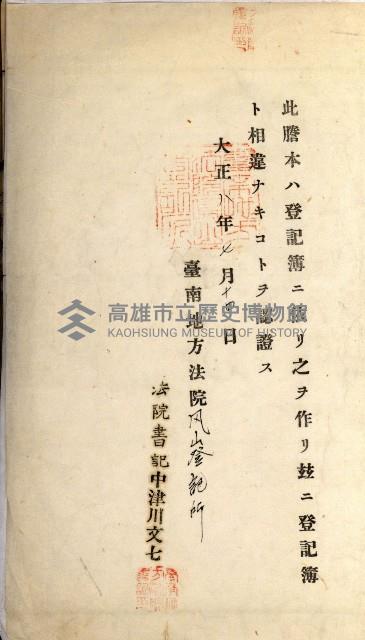 此謄本ハ登記簿ニ依リ之ヲ作リ玆ニ登記簿
ト相違ナキコトヲ認證ス
大正八年七月十四日
臺南地方法院鳳山登記所
法院書記中津川文七
高雄市立歷史博物館
KAOHSIUNG MUSEUM OF HISTORY